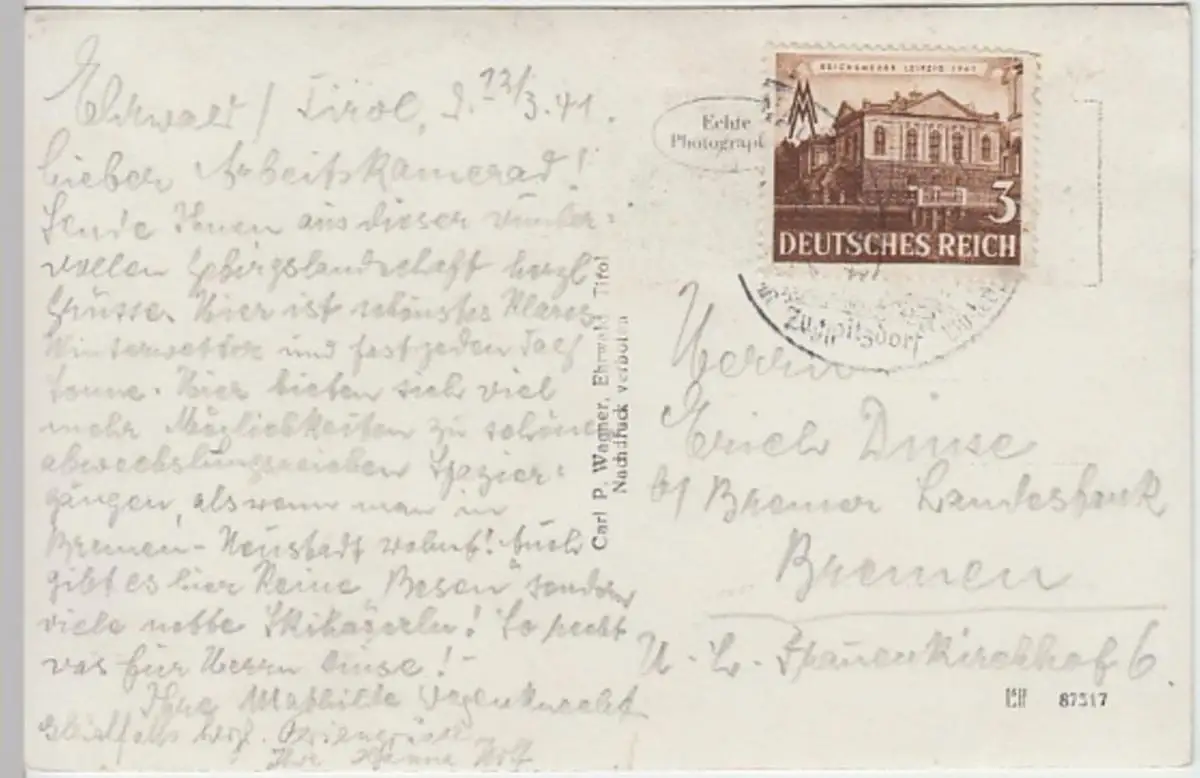 Ehrwald / Tirol, d. 12/3.41.
Lieber Arbeitskamerad!
Sende Ihnen aus dieser wunder-
vollen Gebirgslandschaft herzl.
Grüsse. Hier ist schönstes klares
Winterwetter und fast jeden Tag
Sonne. Hier bieten sich viel
mehr Möglichkeiten zu schönen
abwechslungsreichen Spazier-
gängen, als wenn man in
Bremen-Neustadt wohnt! Auch
gibt es hier keine "Besen" sondern
viele nette Skihaserln! So recht
was für Herrn Dinse!-
Ihre Mathilde
Gleichfalls herzl. Feriengrüsse
Ihre Hanna
Carl P. Wagner, Ehrwald Tirol
Nachdruck verboten
Echte
Photograph
REICHSMESSE LEIPZIG 1941
3
DEUTSCHES REICH
Zugspitzdorf
Herrn
Erich Dinse
b/ Bremer Landesbank
Bremen
U. L. Frauenkirchhof 6.
87317